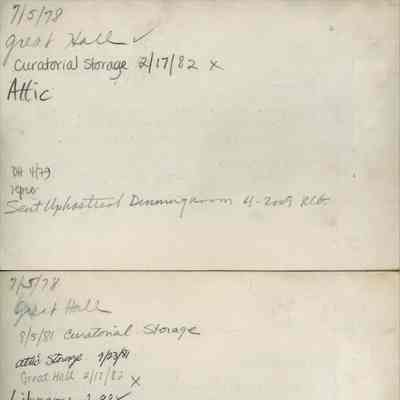 7/5/78
Great Hall ✓
Curatorial Storage 2/17/82 x
Attic
DH 4/79
repro
Sent Upholstered Dinningroom 4-2009 RLG
7/5/78
Great Hall
8/5/81 Curatorial Storage
attic Storage
Great Hall 2/17/82 x